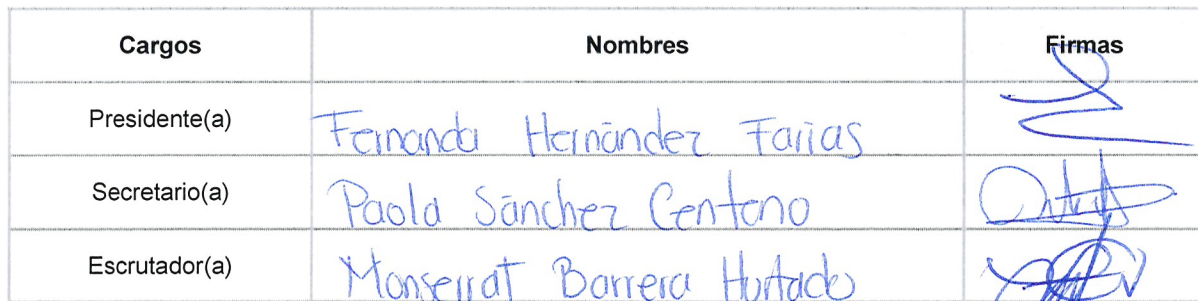 Cargos Nombres Firmas
Presidente(a) Fernanda Hernández Farias
Secretario(a) Paola Sánchez Centeno
Escrutador(a) Monserrat Barrera Hurtado